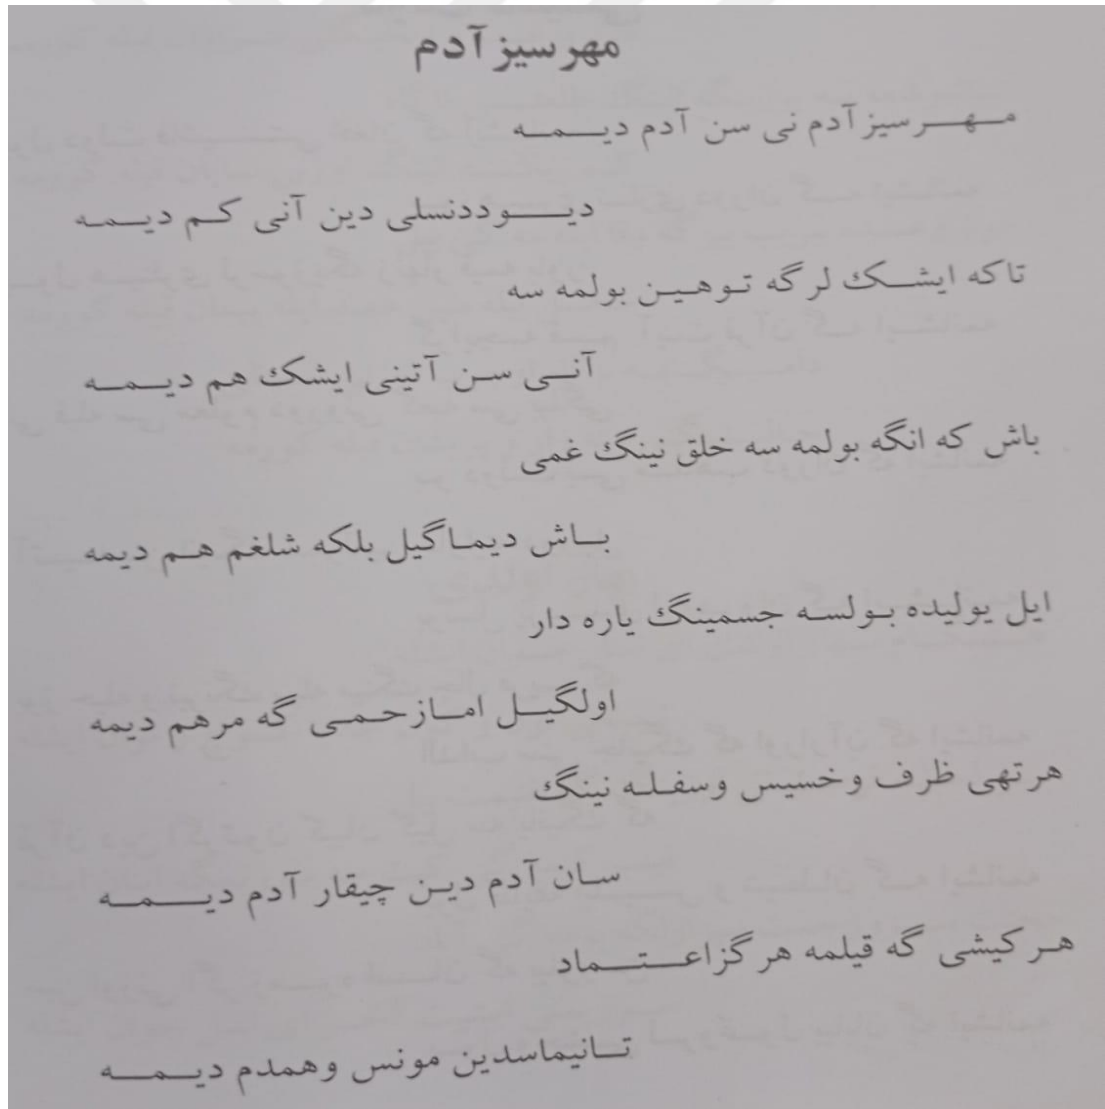 مهر سیز آدم
مهر سیز آدم نی سن آدم دیمه
دیو ددنسلی دین آنی کم دیمه
تاکه ایشک لر گه توهین بولمه سه
آنی سن آتینی ایشک هم دیمه
باش که انگه بولمه سه خلق نینگ غمی
باش دیماگیل بلکه شلغم هم دیمه
ایل یولیده بولسه جسمینگ یاره دار
اولگیل امازحمی گه مرهم دیمه
هر تهی ظرف و خسیس وسفله نینگ
سان آدم دین چیقار آدم دیمه
هر کیشی گه قیلمه هر گزاعتماد
تانیماسدین مونس وهمدم دیمه